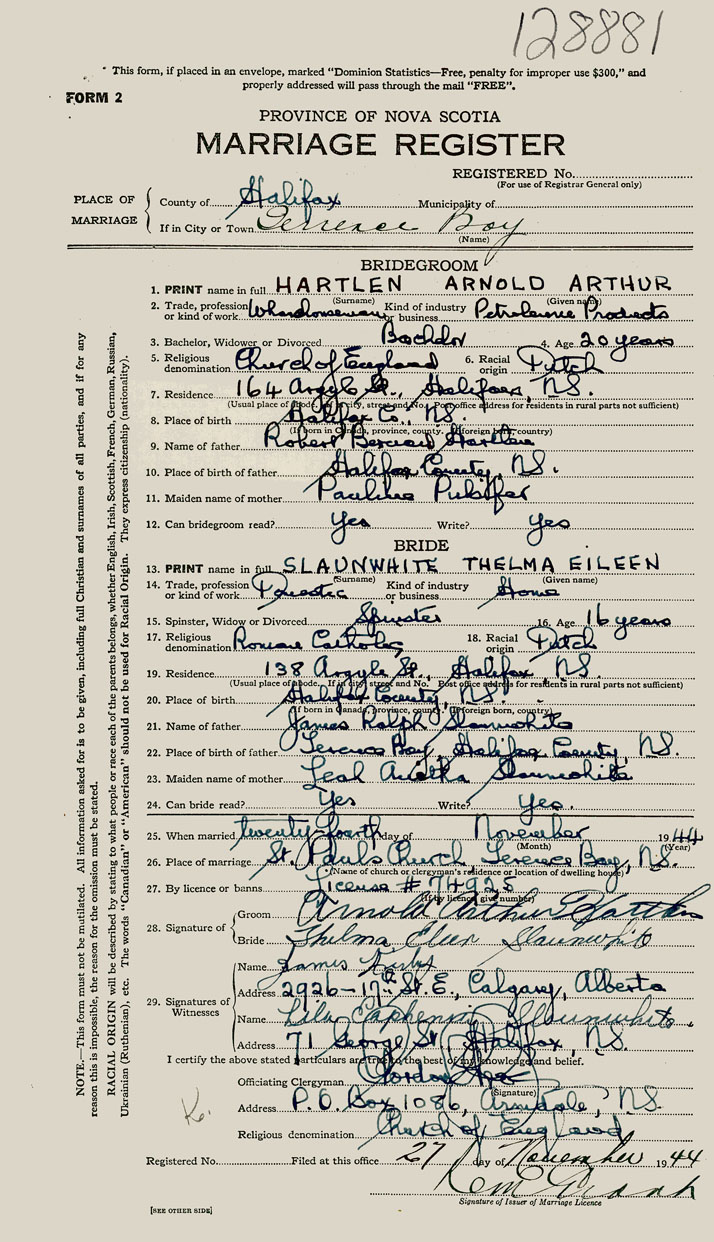 128881
This form, if placed in an envelope, marked "Dominion Statistics—Free, penalty for improper use $300," and
properly addressed will pass through the mail "FREE".
FORM 2
PROVINCE OF NOVA SCOTIA
MARRIAGE REGISTER
REGISTERED No.
(For use of Registrar General only)
PLACE OF MARRIAGE
County of Halifax Municipality of
If in City or Town Terrence Bay
(Name)
BRIDEGROOM
1. PRINT name in full HARTLEN ARNOLD ARTHUR
(Surname) (Given name)
2. Trade, profession or kind of work Wharehouseman Kind of industry or business Petroleum Products
3. Bachelor, Widower or Divorced Bachelor 4. Age 20 years
5. Religious denomination Church of England 6. Racial origin Dutch
7. Residence 164 Argyle St., Halifax, N.S.
(Usual place of abode. If in city, street and No. Post office address for residents in rural parts not sufficient)
8. Place of birth Halifax Co., N.S.
(If born in Canada, province, county. If foreign born, country)
9. Name of father Robert Bernard Hartlen
10. Place of birth of father Halifax County, N.S.
11. Maiden name of mother Pauline Pulsifer
12. Can bridegroom read? Yes Write? Yes
BRIDE
13. PRINT name in full SLAUNWHITE THELMA EILEEN
(Surname) (Given name)
14. Trade, profession or kind of work Domestic Kind of industry or business Home
15. Spinster, Widow or Divorced Spinster 16. Age 16 years
17. Religious denomination Roman Catholic 18. Racial origin Dutch
19. Residence 138 Argyle St., Halifax, N.S.
(Usual place of abode. If in city, street and No. Post office address for residents in rural parts not sufficient)
20. Place of birth Halifax County, N.S.
(If born in Canada, province, county. If foreign born, country)
21. Name of father James Ralph Slaunwhite
22. Place of birth of father Terence Bay, Halifax County, N.S.
23. Maiden name of mother Leah Slaunwhite
24. Can bride read? Yes Write? Yes.
25. When married twenty-fourth day of November 1944
(Month) (Year)
26. Place of marriage St. Pauls Church Terence Bay, N.S.
(Name of church or clergyman's residence or location of dwelling house)
27. By licence or banns License # 74925
(If by licence, give number)
28. Signature of
Groom Arnold Arthur Hartlen
Bride Thelma Eileen Slaunwhite
29. Signatures of Witnesses
Name James
Address 2926-17th St. E., Calgary, Alberta
Name Slaunwhite.
Address 71 George St. Halifax, N.S.
I certify the above stated particulars are true to the best of my knowledge and belief.
Officiating Clergyman Gordon
(Signature)
Address P.O. Box 1086, Armdale, N.S.
Religious denomination Church of England
Registered No. Filed at this office 27 day of November 1944
Signature of Issuer of Marriage Licence
[SEE OTHER SIDE]
NOTE.—This form must not be mutilated. All information asked for is to be given, including full Christian and surnames of all parties, and if for any
reason this is impossible, the reason for the omission must be stated.
RACIAL ORIGIN will be described by stating to what people or race each of the parents belongs, whether English, Irish, Scottish, French, German, Russian,
Ukrainian (Ruthenian), etc. The words "Canadian" or "American" should not be used for Racial Origin. They express citizenship (nationality).